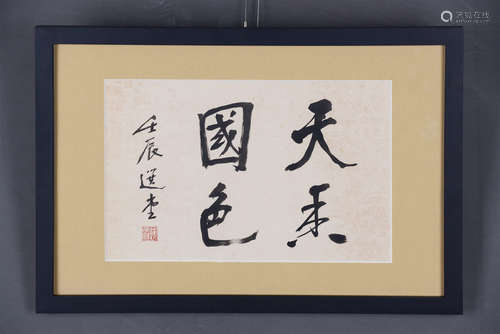 天香
國色
壬辰選堂